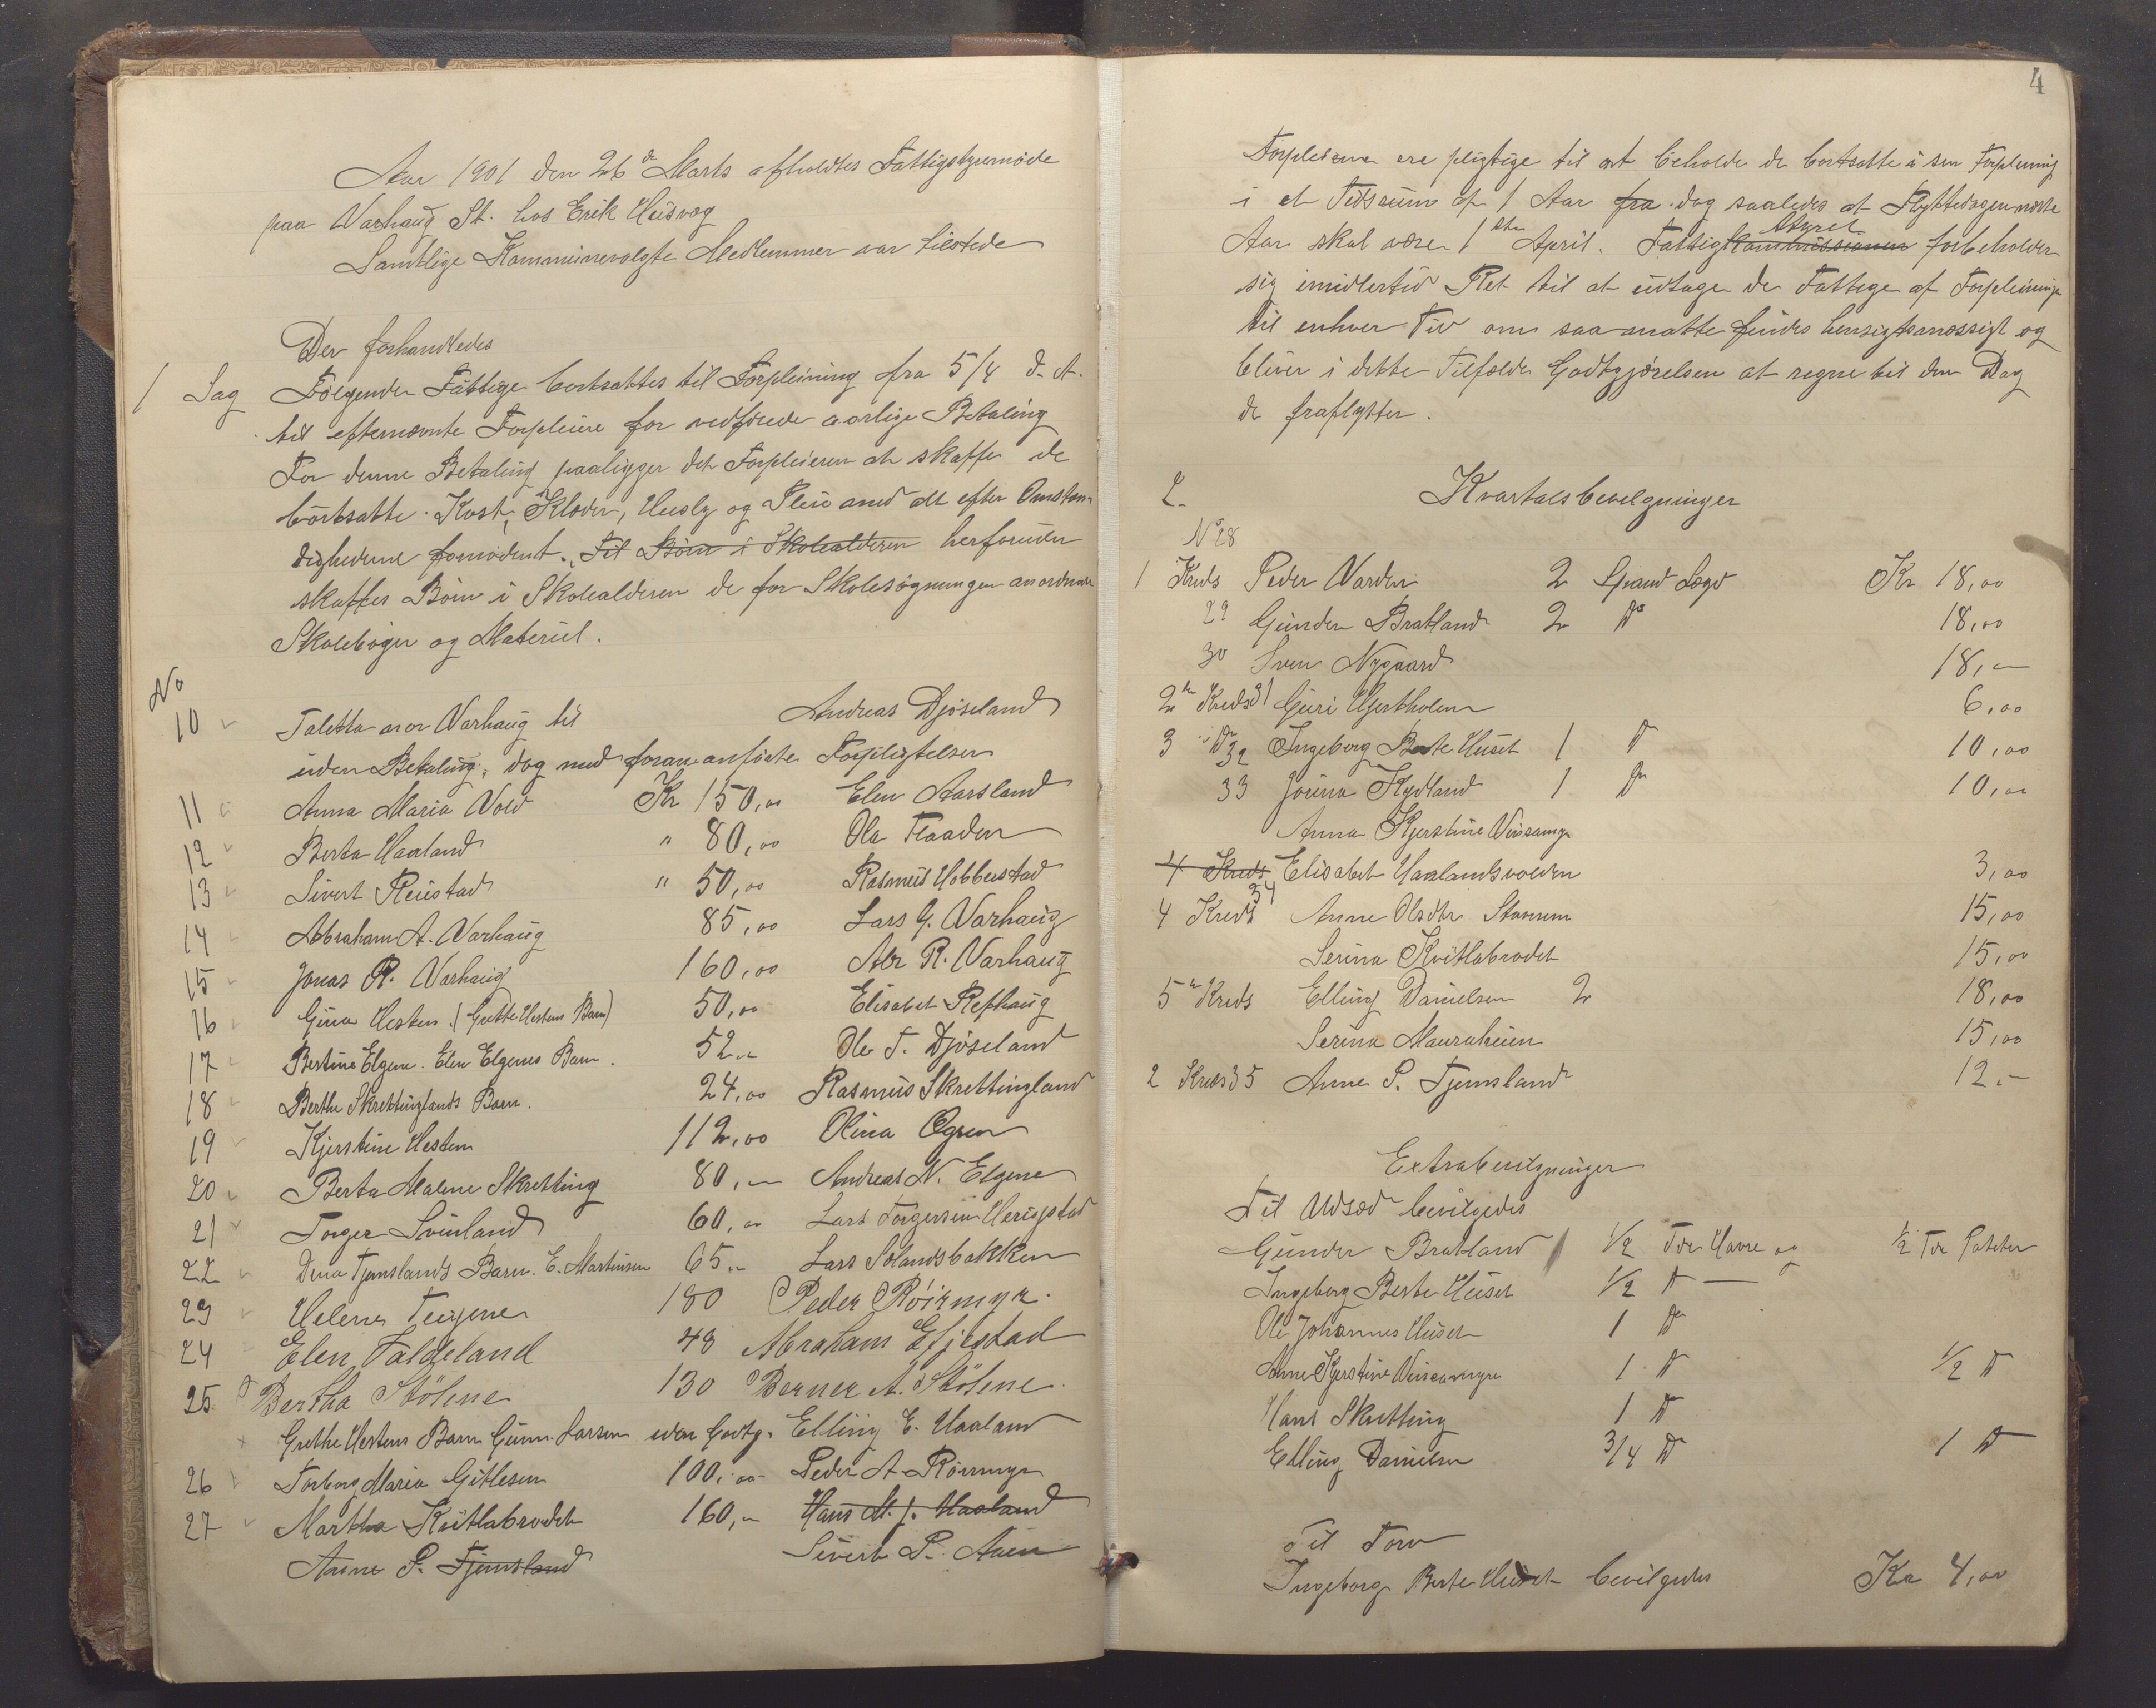 Aar 1901 den 26de Marts afholdtes Fattigstyremöde
paa Varhaug St. hos Erik Husvæg
Samtlige Kommunevalgte Medlemmer var tilstede
Der forhandledes
1 Sag Følgende Fattige bortsattes til Forpleining fra 5/4 d. A.
til efternævnte Forpleiere for vedførede aarlige Betaling
For denne Betaling paaligger det Forpleieren at skaffe de
bortsatte Kost, Klæder, Husly og Pleie med alt efter Omstæn-
dighederne fornødent. Til Börn i Skolealderen herforuden
skaffes Börn i Skolealderen de for Skolesøgningen anordnede
Skoleböger og Materiel.
No
10 Taletta Varhaug til Andreas Djöseland
uden Betaling, dog med foran anførte Forpligtelser
11 Anna Maria Vold Kr 150,00 Elen Aarsland
12 Berta Haaland " 80,00 Ola Flaaden
13 Sivert Reiestad " 50,00 Rasmus Hobberstad
14 Abraham A. Varhaug 85,00 Lars G. Varhaug
15 Jonas R. Varhaug 160,00 Abr R. Varhaug
16 Gina Hesten (Grethe Hestens Barn) 50,00 Elisabet Refhaug
17 Bertine Elgene. Elen Elgenes Barn. 52,- Ole T. Djöseland
18 Berthe Skrettinglands Barn. 24,00 Rasmus Skrettingland
19 Kjerstine Hesten 112,00 Olina Ogren
20 Berta Malene Skretting 80,- Andreas N. Elgene
21 Torger Svinland 60,00 Lars Torgersen Herigstad
22 Dina Tjemslands Barn. E. Martinsen 65,- Lars Sölandsbakken
23 Helene Teigene 180 Peder Röirmyr.
24 Elen Taldeland 48 Abraham Efjestad
25. Bertha Stölene 130 Berner A. Stölene.
Grethe Hestens Barn Gunn. Larsen uden Godtg. Elling E. Haaland
26 Torborg Maria Gitlesen 100,00 Peder A. Rörmyr
27 Martha Kvitlabrodet 160,- Hans M. J. Haaland
Anne P. Tjemsland Sivert P. Auen
4
Forpleierne ere pligtige til at beholde de bortsatte i sin Forpleining
i et Tidsrum af 1 Aar fra dog saaledes at Flyttedagen næste
Aar skal være 1ste April. Fattigkommissionen Styret forbeholder
sig imidlertid Ret til at udtage de Fattige af Forpleiningen
til enhver Tid om saa maatte findes hensigtsmæssigt og
bliver i dette Tilfælde Godtgjörelsen at regne til den Dag
de fraflytter.
2. Kvartalsbevilgninger
No 28
1 Kreds Peder Varden 2 Spand Lægd Kr 18,00
29 Gunder Bratland 2 Do 18,00
30 Sven Nygaard 18,-
2den Kreds 31 Guri Hjertholm 6,00
3 Do 32 Ingeborg Berte Huset 1 Do 10,00
33 Jorina Kydland 1 Do 10,00
Anna Kjerstine Vinsamyr
4 Kreds Elisabet Haalandsvolden 3,00
4 Kreds 34 Anne Olsdtr Stavnem 15,00
Serina Kvitlabrodet 15,00
5te Kreds Elling Danielsen 2 18,00
Serina Mauraheien 15,00
2 Kreds 35 Anne P. Tjemsland 12,-
Extrabevilgninger
Til Udsæd bevilgedes
Gunder Bratland 1/2 Tde Havre og 1/2 Tde Poteter
Ingeborg Berte Huset 1/2 Do
Ole Johannes Huset 1 Do
Anne Kjerstine Vinsamyr 1 Do 1/2 Do
Hans Skretting 1 Do
Elling Danielsen 3/4 Do 1 Do
Til Torv
Ingeborg Berte Huset bevilgedes Kr 4,00